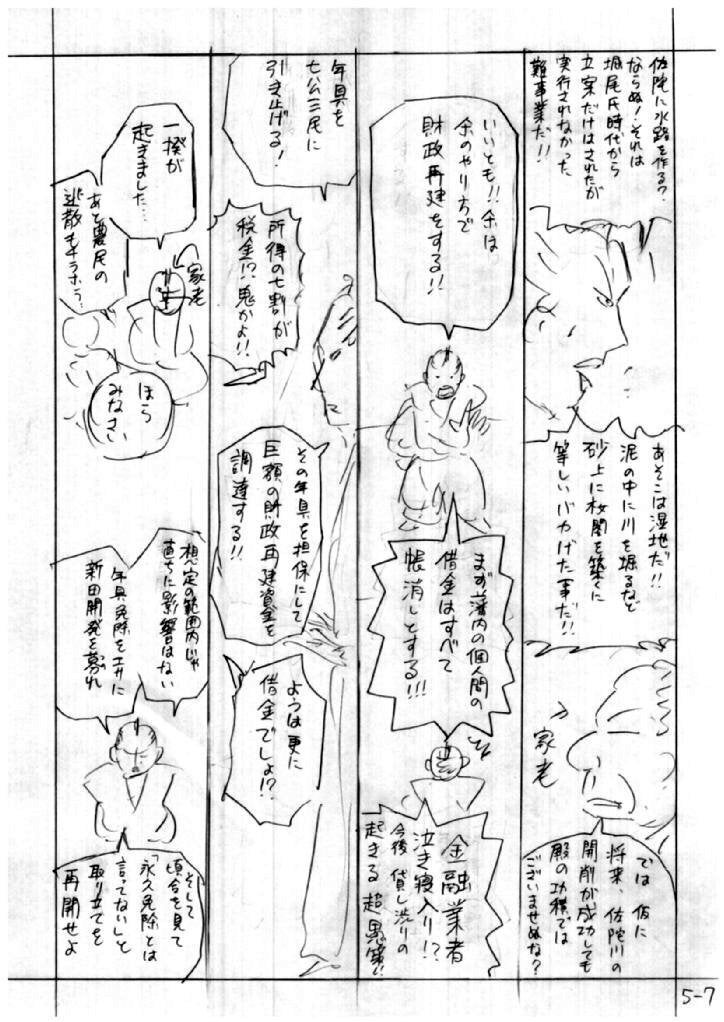 佐陀に水路を作る?
ならぬ!それは
堀尾氏時代から
立案だけはされたが
実行されなかった
難事業だ!!
あそこは湿地だ!!
泥の中に川を掘るなど
砂上に桜閣を築くに
等しいバカげた事だ!!
家老
では仮に
将来、佐陀川の
開削が成功しても
殿の功績では
ございませぬな?
いいとも!!余は
余のやり方で
財政再建をする!!
まず藩内の個人間の
借金はすべて
帳消しとする!!!
金融業者
泣き寝入り!?
今後貸し渋りの
起きる超愚策!!
年具を
七公三民に
引き上げる!
所得の七割が
税金!?鬼かよ!!
その年具を担保にして
巨額の財政再建資金を
調達する!!
ようは更に
借金でしょ!?
一揆が
起きました…
家老
あと農民の
逃散もチラホラ…
ほら
みなさい
想定の範囲内じゃ
直ちに影響はない
年具免除をエサに
新田開発を募れ
そして
頃合を見て
「永久免除とは
言ってない」と
取り立てを
再開せよ
5-7